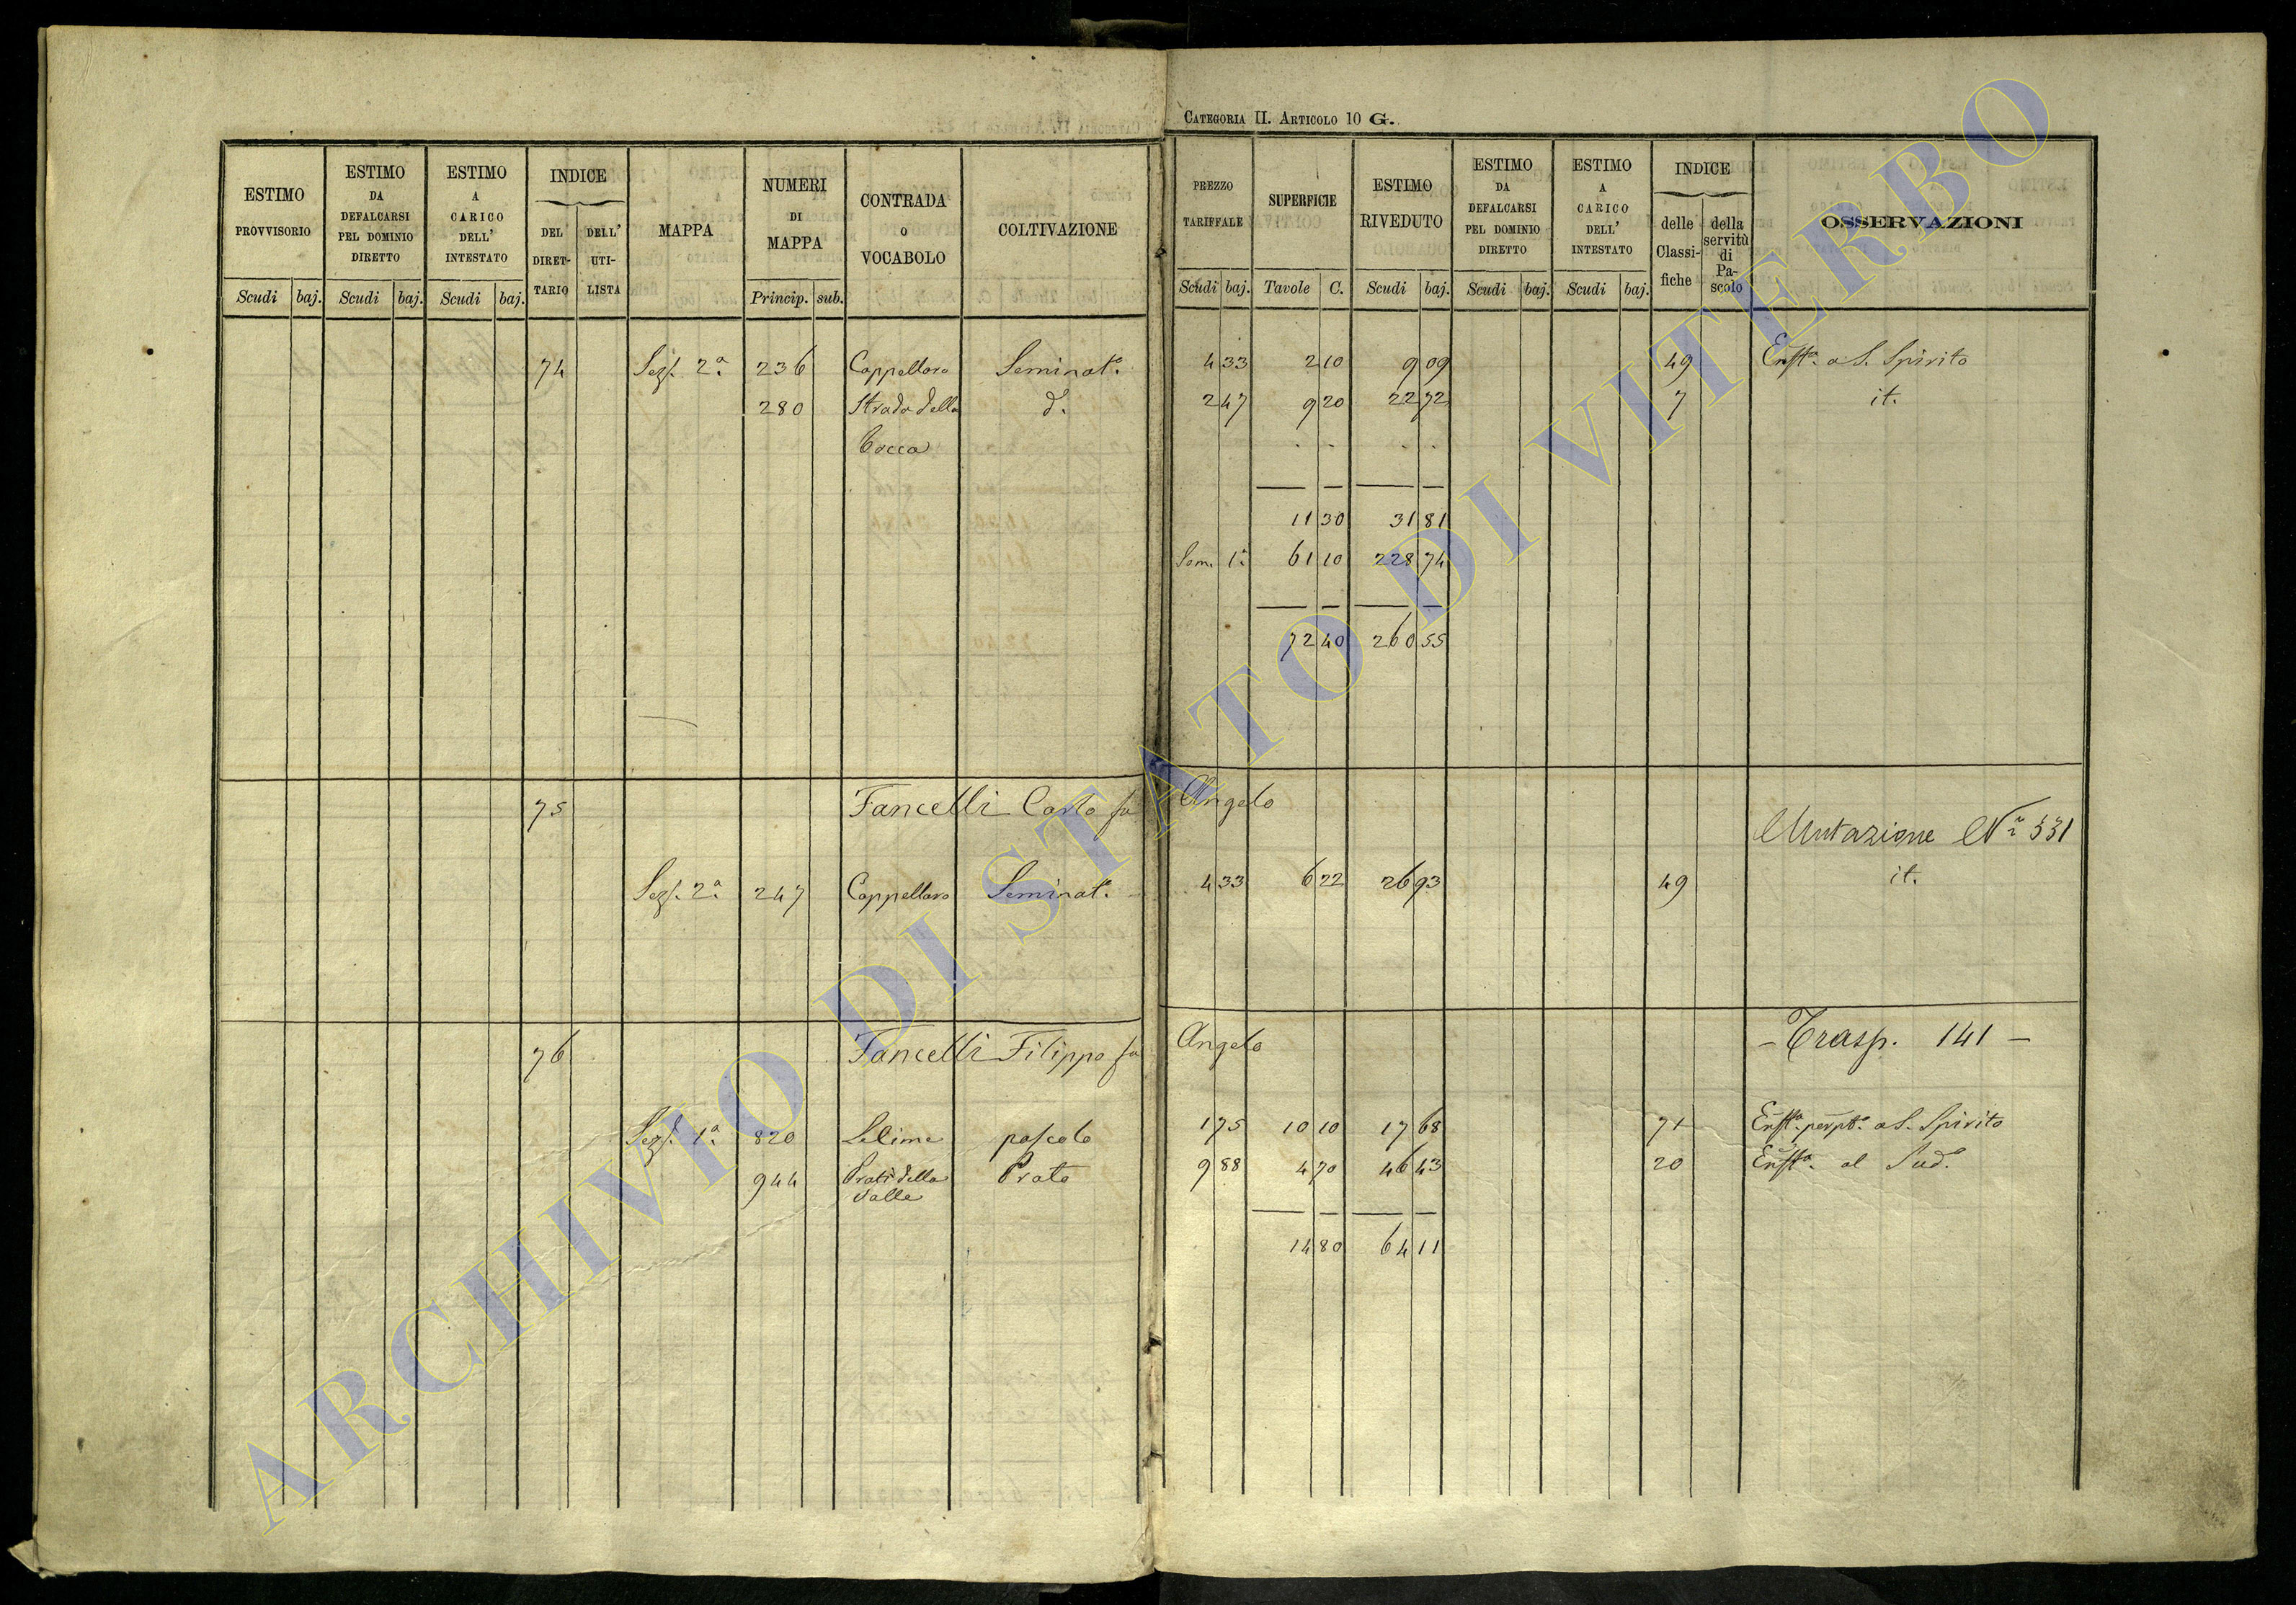 CATEGORIA II. ARTICOLO 10 G.
ESTIMO PROVVISORIO
ESTIMO DA DEFALCARSI PEL DOMINIO DIRETTO
ESTIMO A CARICO DELL' INTESTATO
INDICE
DEL DIRET-TARIO
DELL' UTI-LISTA
MAPPA
NUMERI DI MAPPA
CONTRADA O VOCABOLO
COLTIVAZIONE
PREZZO TARIFFALE
SUPERFICIE
ESTIMO RIVEDUTO
ESTIMO DA DEFALCARSI PEL DOMINIO DIRETTO
ESTIMO A CARICO DELL' INTESTATO
INDICE
delle Classi-fiche
della servitù di Pa-scolo
OSSERVAZIONI
Scudi baj. Scudi baj. Scudi baj. Princip. sub. Scudi baj. Tavole C. Scudi baj. Scudi baj. Scudi baj.
74 Sez. 2ª 236 Cappellaro Seminatº 4 33 2 10 9 09 49 Enfta. a S. Spirito
280 Strada della dº. 2 47 9 20 22 72 7 it.
Rocca
11 30 31 81
Som. 1ª 61 10 228 74
72 40 260 55
75 Fancelli Carlo fu Angelo
Mutazione Nº 331
Sez. 2ª 247 Cappellaro Seminatº 4 33 6 22 26 93 49 it.
76 Fancelli Filippo fu Angelo - Trasp. 141 -
Sez. 1ª 820 Selime pascolo 1 75 10 10 17 68 71 Enfta. perpta. a S. Spirito
944 Prati della Prato 9 88 4 70 46 43 20 Enfta. al Sudº
Valle
14 80 64 11
ARCHIVIO DI STATO DI VITERBO